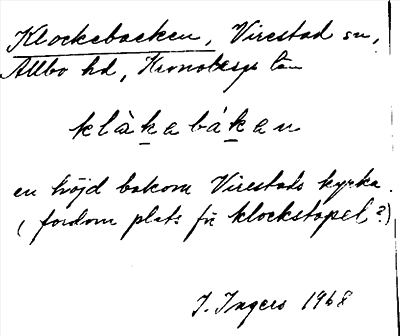 Klockebacken, Virestad sn,
Allbo hd, Kronobergs län
klàkabákan
en höjd bakom Virestads kyrka.
(fordom plats för klockstapel?)
I. Ingers 1968